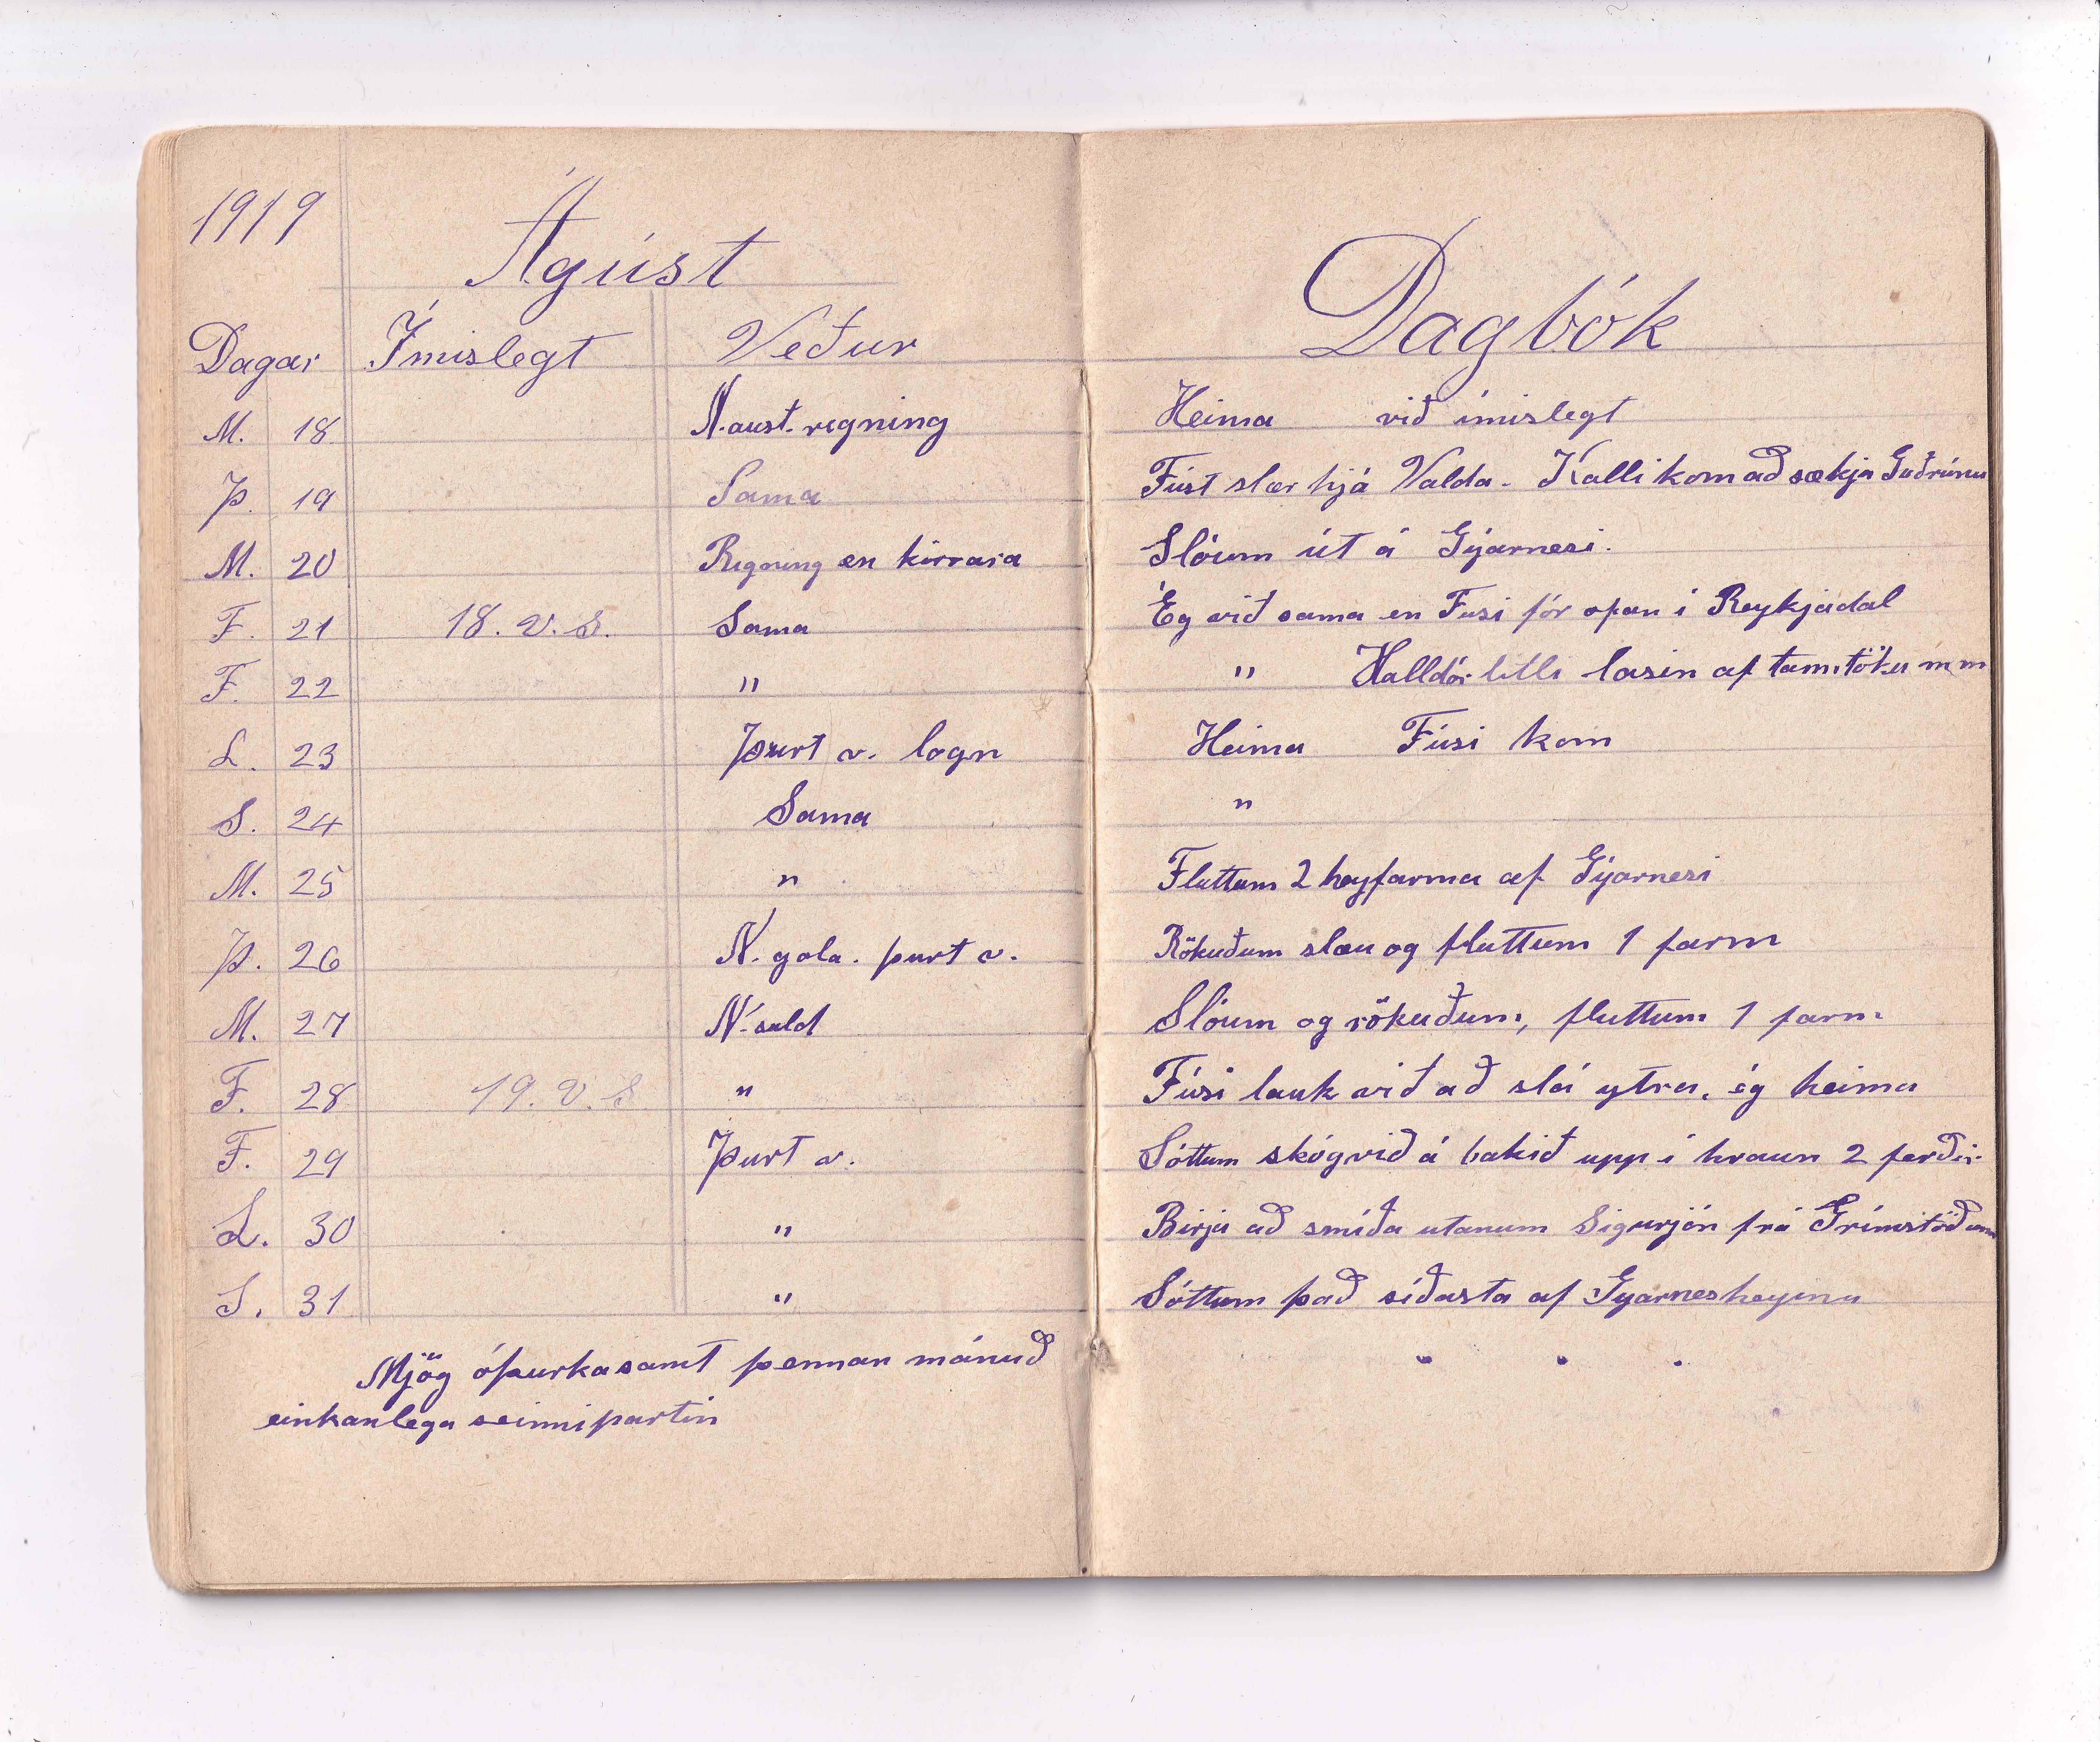 1919
Ágúst
Dagbók
Dagar Ímislegt Veður
M. 18 N.aust. regning Heima við ímislegt
Þ. 19 Sama Fúsi slær hjá Valda - Kalli kom að sækja Guðrúnu
M. 20 Rigning en kirrara Slóum út á Gýarnesi.
F. 21 18. V. S. Sama Ég við sama en Fusi fór ofan í Reykjadal
F. 22 " " Halldór litli lasin af tanntöku m m
L. 23 Þurt v. logn Heima Fúsi kom
S. 24 Sama "
M. 25 " Fluttum 2 heyfarma af Gýarnesi
Þ. 26 N. gola. þurt v. Rökuðum slæu og fluttum 1 farm
M. 27 N. suld Slóum og rökuðum, fluttum 1 farm
F. 28 19. V. S " Fúsi lauk við að slá ytra, ég heima
F. 29 Þurt v. Sóttum skógvið á bakið upp í hraun 2 ferðir
L. 30 " Birja að smíða utanum Sigurjón frá Grímstöðum
S. 31 " Sóttum það síðasta af Gyarnesheyinu
Mjög óþurkasamt þennan mánuð
einkanlega seinnipartin